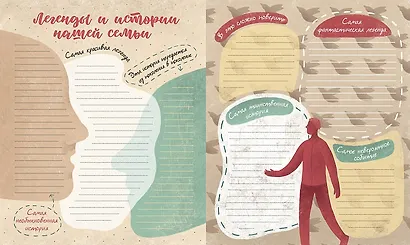 Легенды и истории
нашей семьи
Самая красивая легенда
Эта история передаётся
из поколения в поколение
Самая
необыкновенная
история
В это сложно поверить
Самая
фантастическая легенда
Самая таинственная
история
Самое невероятное
событие